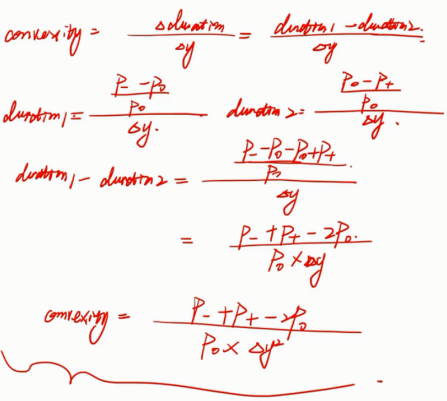 convexity = Δduration / Δy = duration1 - duration2 / Δy
duration1 = (P- - P0) / P0 / Δy. duration2 = (P0 - P+) / P0 / Δy.
duration1 - duration2 = (P- - P0 - P0 + P+) / P0 / Δy
= P- + P+ - 2P0. / P0 × Δy
convexity = P- + P+ - 2P0 / P0 × Δy²